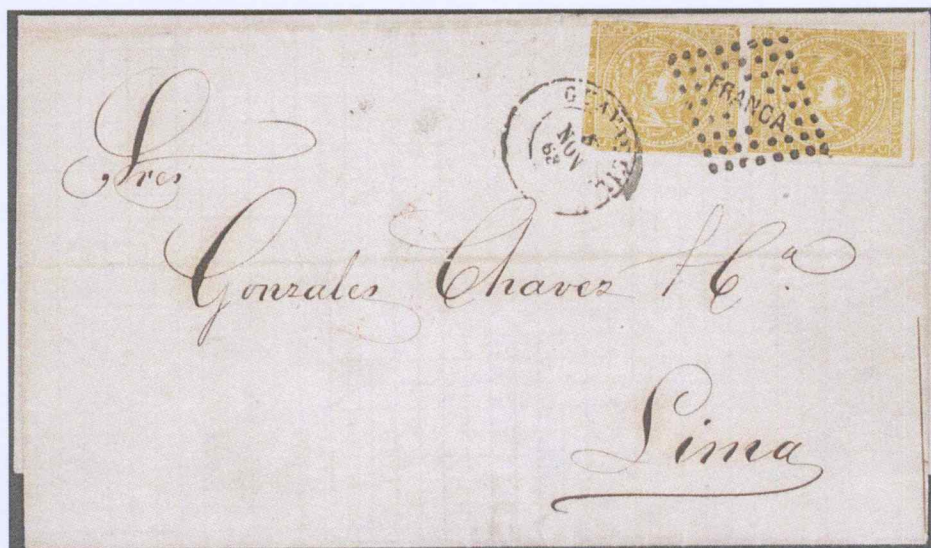 FRANCA
NOV
68
Sres
Gonzales Chavez & Cª.
Lima